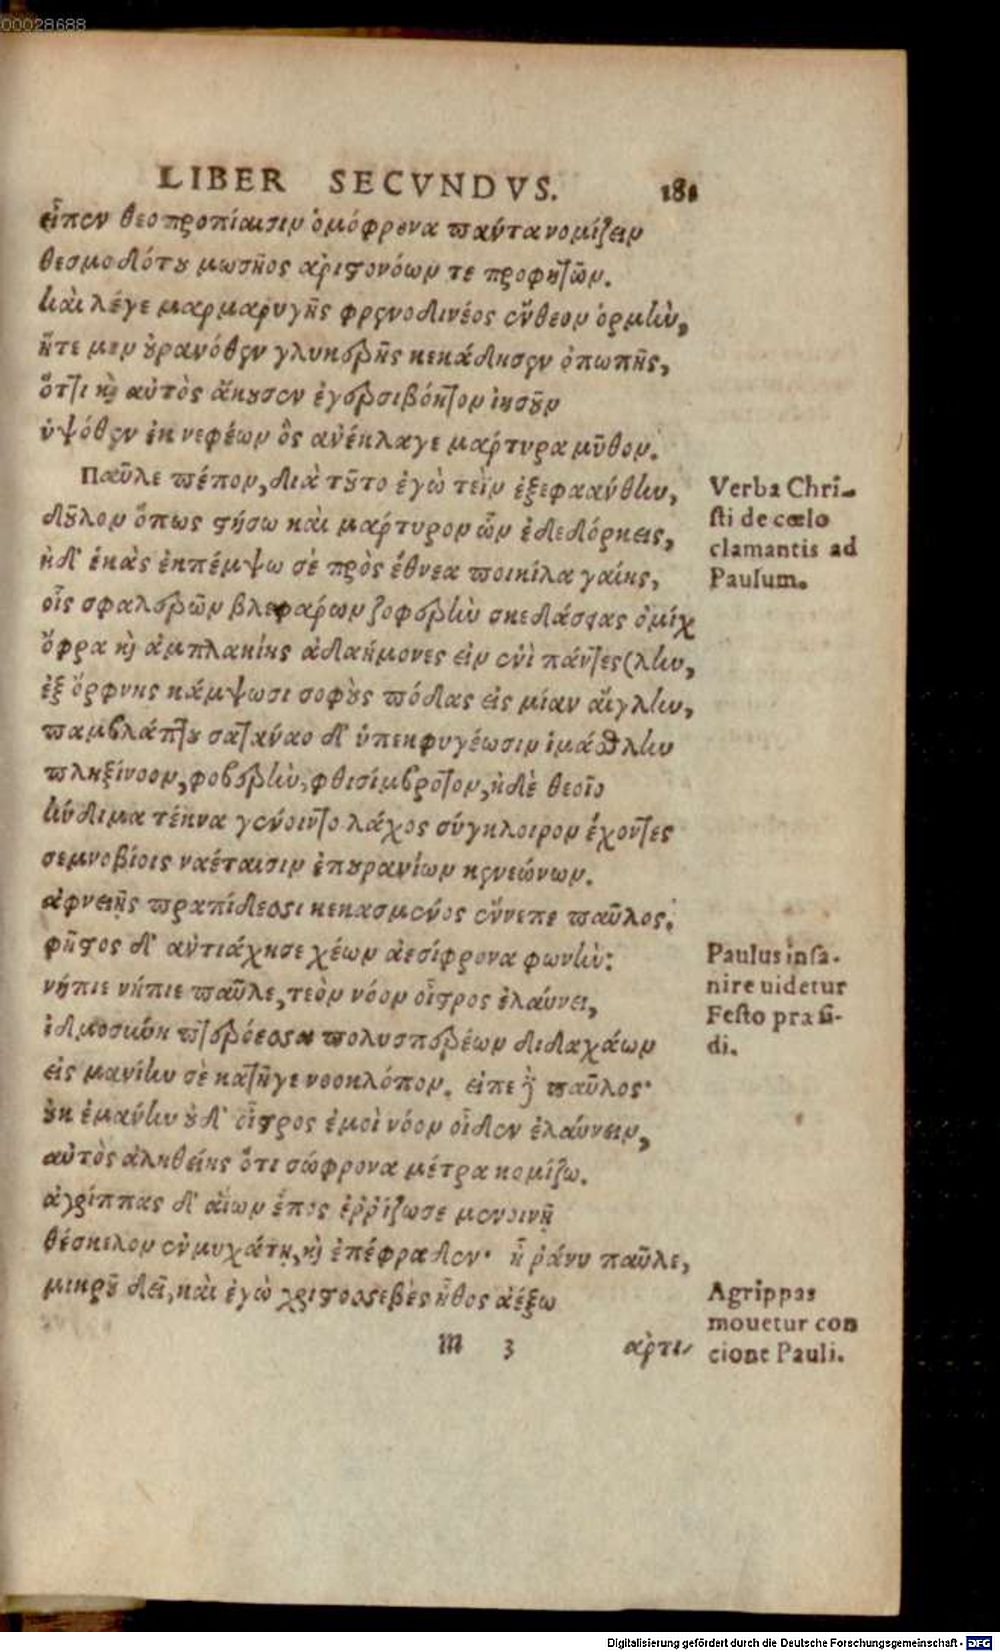 00028688
LIBER SECVNDVS. 181
εἶπον θεοπροπίαισιν ὁμόφρονα πάντα νομίζειν
θεσμοδότου μωσῆος ἀριστονόων τε προφητῶν.
καὶ λέγε μαρμαρυγῆς φρενοδινέος ἔνθεον ὁρμὴν,
ἥτε μεν οὐρανόθεν γλυκερῆς κεκάδησεν ὀπωπῆς,
ὅττι καὶ αὐτὸς ἄκουσεν ἐγερσιβόητον ἰησοῦν
ὑψόθεν ἐκ νεφέων ὃς ἀνέκλαγε μάρτυρα μῦθον.
Παῦλε πέπον, διὰ τοῦτο ἐγὼ τεῒν ἐξεφαάνθην,
Verba Chri-
δοῦλον ὅπως στήσω καὶ μάρτυρον ὧν ἐδεδόρκεις,
sti de cœlo
clamantis ad
ἠδ' ἑκὰς ἐκπέμψω σὲ πρὸς ἔθνεα ποικίλα γαίης,
Paulum.
οἷς σφαλερῶν βλεφάρων ζοφερὴν σκεδάσειας ὀμίχ
ὄφρα καὶ ἀμπλακίης ἀδαήμονες εἰν ἑνὶ πάντες (λην,
ἐξ ὄρφνης κάμψωσι σοφοὺς πόδας εἰς μίαν αἴγλην,
παμβλάπτου σατανάο δ' ὑπεκφυγέωσιν ἱμάσθλην
πληξίνοον, φοβερὴν, φθισίμβροτον, ἠδὲ θεοῖο
κύδιμα τέκνα γένοιντο λάχος σύγκληρον ἔχοντες
σεμνοβίοις ναέταισιν ἐπουρανίων κενεώνων.
ἀφνειῇς πραπίδεσσι κεκασμένος ἔννεπε παῦλος.
φῆστος δ' ἀντιάχησε χέων ἀεσίφρονα φωνὴν:
Paulus insa-
νήπιε νήπιε παῦλε, τεὸν νόον οἶστρος ἐλαύνει,
nire uidetur
Festo præsi-
ἐδμοσύνη πολυσπερέων διδαχάων
di.
εἰς μανίην σὲ κατῆγε νοοκλόπον. εἶπε δὲ παῦλος·
οὐκ ἐμάνην οὐδ' οἶστρος ἐμοὶ νόον οἶδεν ἐλαύνειν,
αὐτὸς ἀληθείης ὅτι σώφρονα μέτρα κομίζω.
ἀγρίππας δ' ἀΐων ἔπος ἐρρίζωσε μενοινῇ
θέσκελον ἐν μυχάτῃ, καὶ ἐπέφραδεν· ἦ ῥάνυ παῦλε,
μικροῦ δεῖ, καὶ ἐγὼ χριστοσεβὲς ἦθος ἀέξω
Agrippas
mouetur con
cione Pauli.
m 3 ἀρτι-
Digitalisierung gefördert durch die Deutsche Forschungsgemeinschaft - DFG